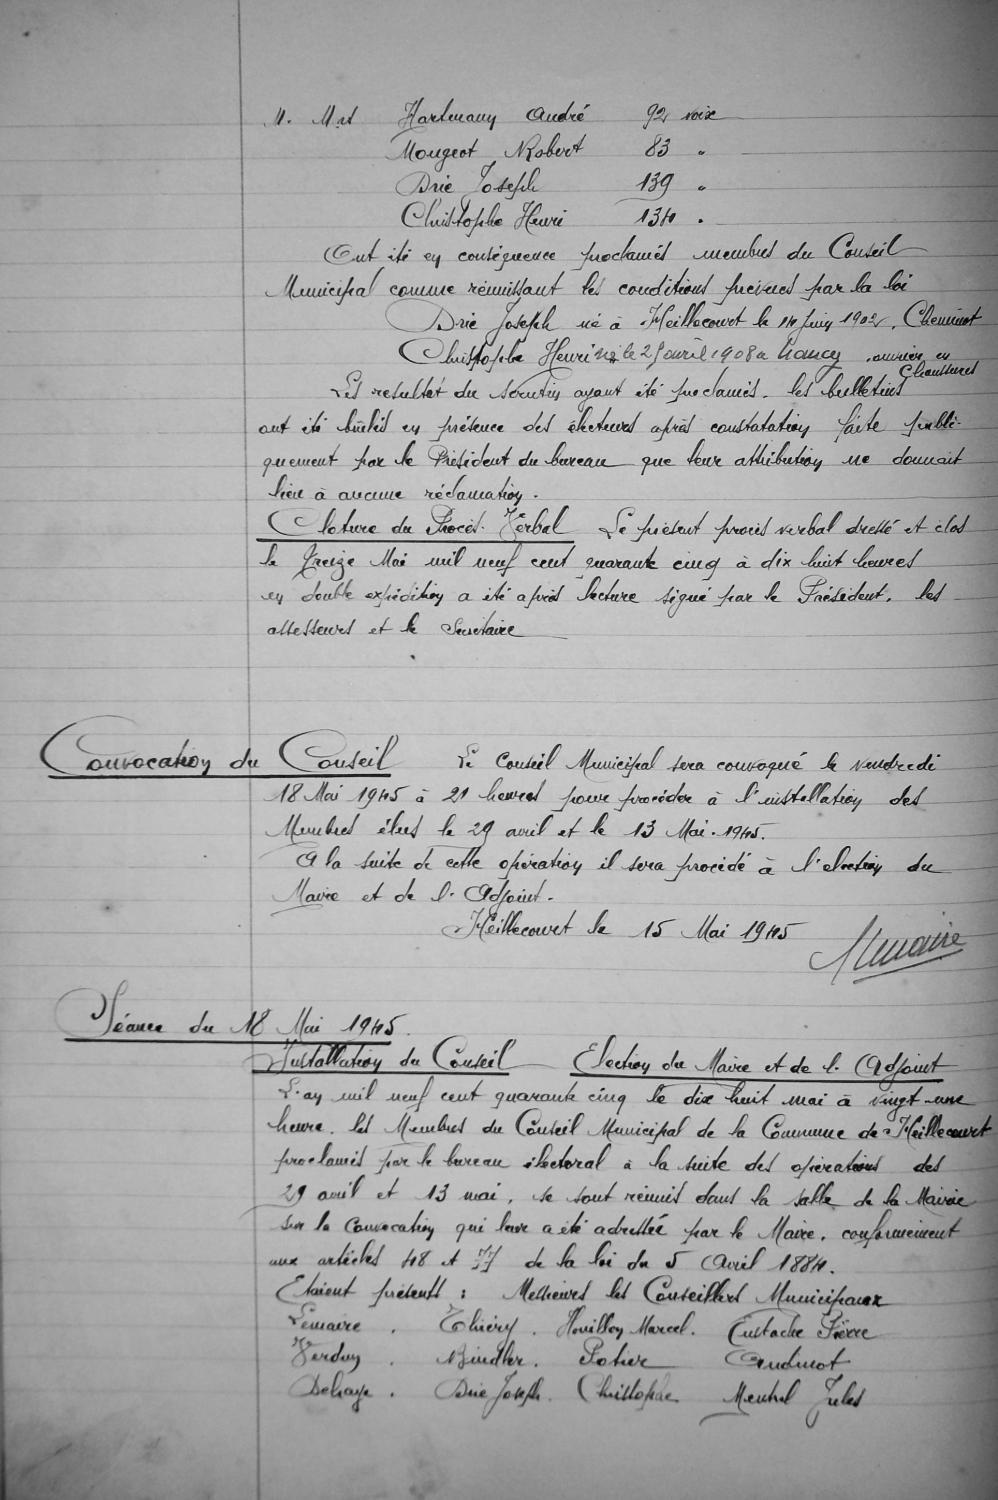 M. Mrs Hartmann André 92 voix
Mougeot Robert 83 "
Drié Joseph 139 "
Christophe Henri 134 "
Ont été en conséquence proclamés membres du Conseil
Municipal comme réunissant les conditions prévues par la loi
Drié Joseph né à Heillecourt le 14 Juin 1902, Cheminot
Christophe Henri né le 25 avril 1908 à Nancy, ouvrier en
Chaussures
Les résultat du scrutin ayant été proclamés, les bulletins
ont été brûlés en présence des électeurs après constatation faite publi-
quement par le Président du bureau que leur attribution ne donnait
lieu à aucune réclamation.
Cloture du Procès-Verbal Le présent procès verbal dressé et clos
le treize Mai mil neuf cent quarante cinq à dix huit heures
en double expédition a été après lecture signé par le Président, les
assesseurs et le Secrétaire
Convocation du Conseil Le Conseil Municipal sera convoqué le vendredi
18 Mai 1945 à 21 heures pour procéder à l'installation des
Membres élus le 29 avril et le 13 Mai 1945.
A la suite de cette opération il sera procédé à l'élection du
Maire et de l'Adjoint.
Heillecourt le 15 Mai 1945
Lemaire
Séance du 18 Mai 1945.
Installation du Conseil Election du Maire et de l'Adjoint
L'an mil neuf cent quarante cinq le dix huit mai à vingt-une
heure, les Membres du Conseil Municipal de la Commune de Heillecourt
proclamés par le bureau électoral à la suite des opérations des
29 avril et 13 mai, se sont réunis dans la salle de la Mairie
sur la convocation qui leur a été adressée par le Maire, conformément
aux articles 48 et 77 de la loi du 5 Avril 1884.
Etaient présents : Messieurs les Conseillers Municipaux
Lemaire, Thiéry, Houillon Marcel, Eustache Pierre
Verdun, Bindler, Potier Oudinot
Delhaye, Drié Joseph, Christophe Mentrel Jules